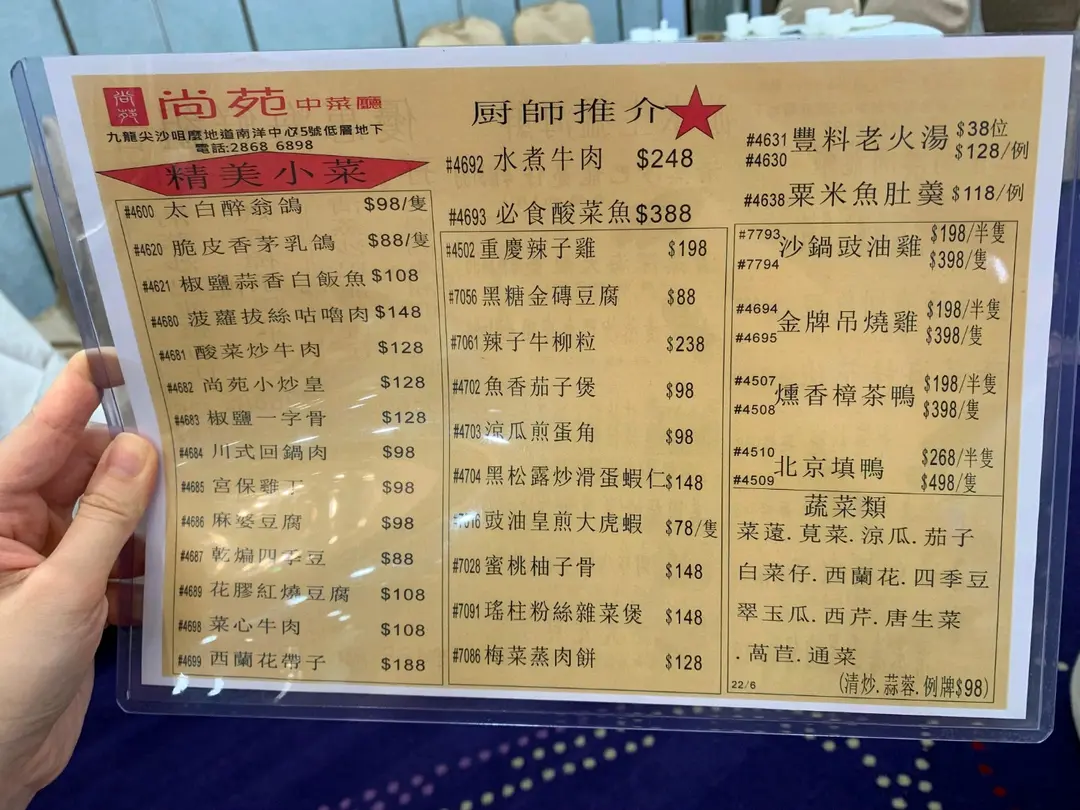 尚苑
尚苑中菜廳
九龍尖沙咀麼地道南洋中心5號低層地下
電話:2868 6898
精美小菜
#4600 太白醉翁鴿 $98/隻
#4620 脆皮香茅乳鴿 $88/隻
#4621 椒鹽蒜香白飯魚 $108
#4680 菠蘿拔絲咕嚕肉 $148
#4681 酸菜炒牛肉 $128
#4682 尚苑小炒皇 $128
#4683 椒鹽一字骨 $128
#4684 川式回鍋肉 $98
#4685 宮保雞丁 $98
#4686 麻婆豆腐 $98
#4687 乾煸四季豆 $88
#4689 花膠紅燒豆腐 $108
#4698 菜心牛肉 $108
#4699 西蘭花帶子 $188
厨師推介
#4692 水煮牛肉 $248
#4693 必食酸菜魚 $388
#4502 重慶辣子雞 $198
#7056 黑糖金磚豆腐 $88
#7061 辣子牛柳粒 $238
#4702 魚香茄子煲 $98
#4703 涼瓜煎蛋角 $98
#4704 黑松露炒滑蛋蝦仁 $148
#7016 豉油皇煎大虎蝦 $78/隻
#7028 蜜桃柚子骨 $148
#7091 瑤柱粉絲雜菜煲 $148
#7086 梅菜蒸肉餅 $128
#4631 豐料老火湯 $38位
#4630 $128/例
#4638 粟米魚肚羹 $118/例
#7793 沙鍋豉油雞 $198/半隻
#7794 $398/隻
#4694 金牌吊燒雞 $198/半隻
#4695 $398/隻
#4507 燻香樟茶鴨 $198/半隻
#4508 $398/隻
#4510 北京填鴨 $268/半隻
#4509 $498/隻
蔬菜類
菜薳.莧菜.涼瓜.茄子
白菜仔.西蘭花.四季豆
翠玉瓜.西芹.唐生菜
.萵苣.通菜
22/6 (清炒.蒜蓉.例牌$98)